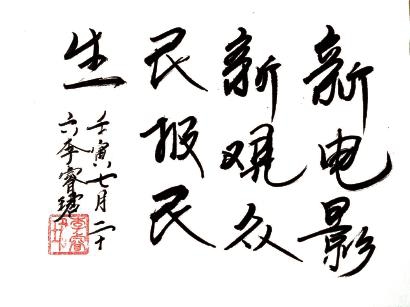 新电影
新观众
民报民
生
壬寅七月二十
六李睿珺